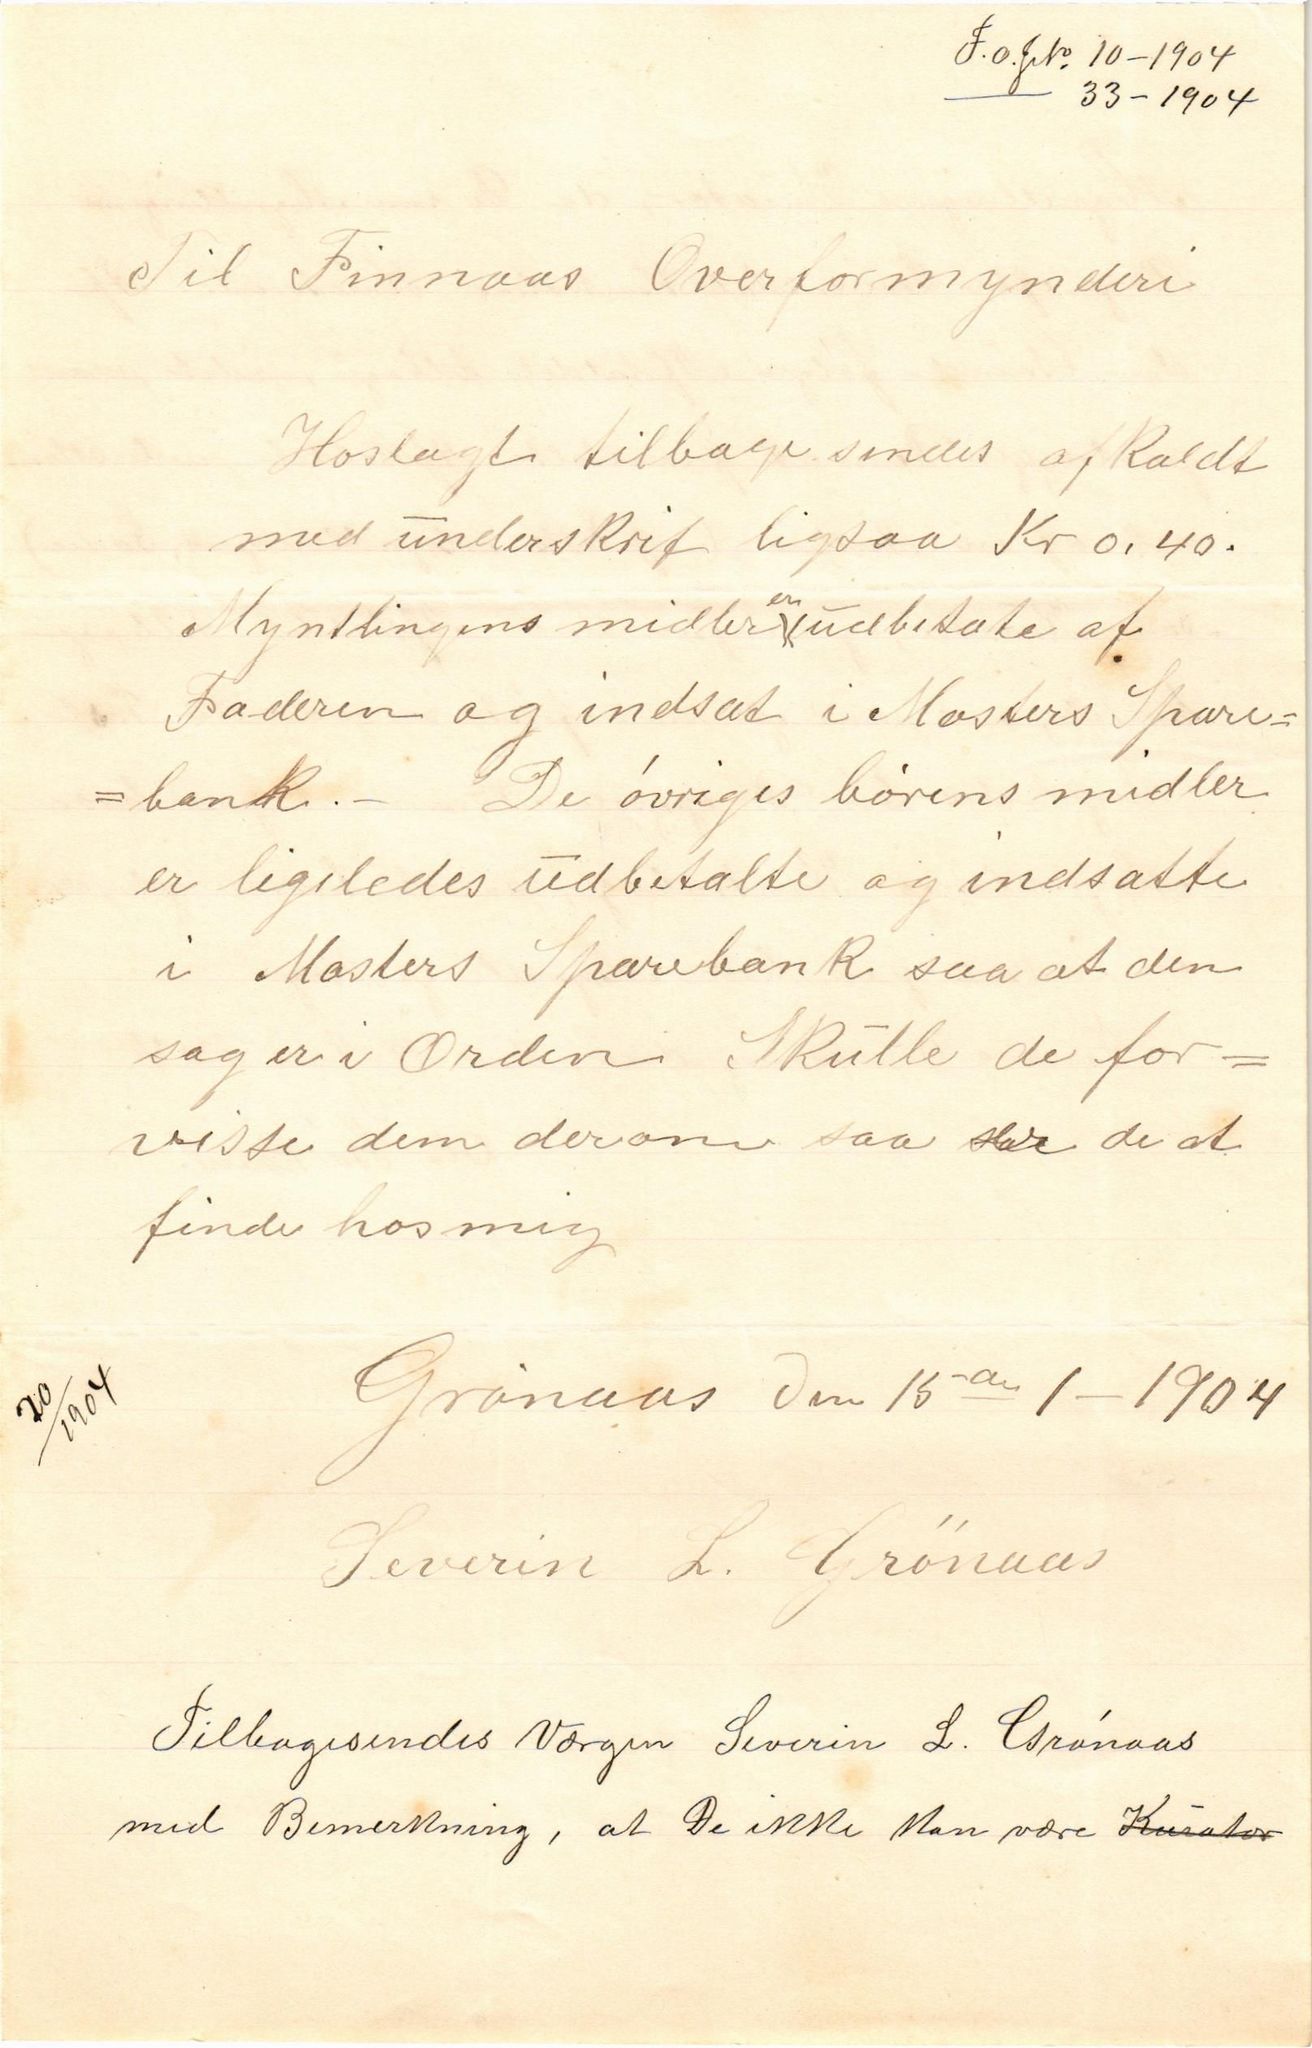 F.o.J.No. 10-1904
33-1904
Til Finnaas Overformynderi
Hoslagt tilbage sendes afkaldt
med underskrif ligsaa Kr 0,40.
Myndlingens midler er udbetate af
Faderen og indsat i Mosters Spare=
=bank.- De óvriges bórens midler
er ligeledes udbetalte og indsatte
i Mosters Sparebank saa at den
sag er i Orden Skulle de for=
visse dem derom saa de at
finde hos mig
Grónaas den 15-de 1-1904
20/1904
Severin L. Grönaas
Tilbagesendes Værgen Severin L. Grónaas
med Bemerkning, at De ikke kan være Kurator